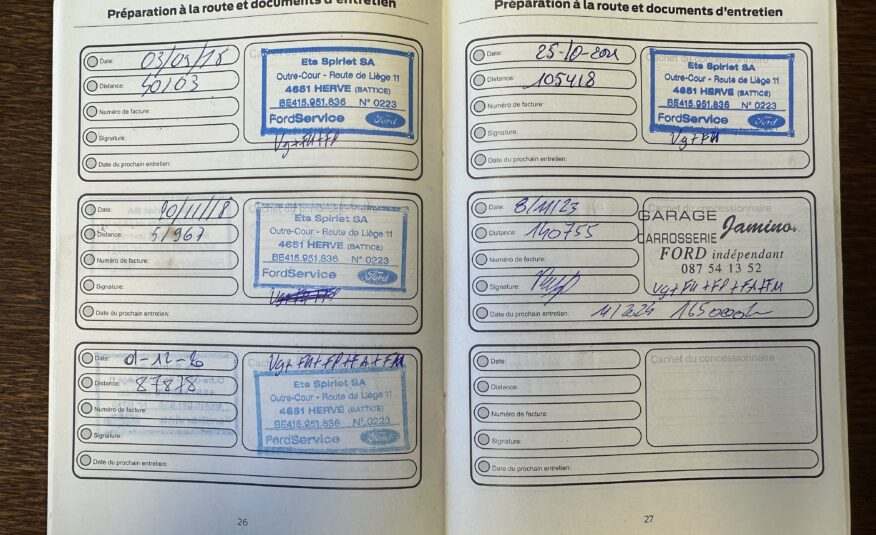 Préparation à la route et documents d'entretien
Date: 03/01/18
Cachet du concessionnaire
Distance: 50103
Numéro de facture:
Signature:
Ets Spirlet SA
Outre-Cour - Route de Liège 11
4651 HERVE (BATTICE)
BE415.951.836 N° 0223
FordService Ford
Vg+FH+FP
Date du prochain entretien:
Date: 20/11/18
Distance: 51967
Numéro de facture:
Signature:
Ets Spirlet SA
Outre-Cour - Route de Liège 11
4651 HERVE (BATTICE)
BE415.951.836 N° 0223
FordService Ford
Date du prochain entretien:
Date: 01-12-20
Distance: 87878
Numéro de facture:
Signature:
Vg+FH+FP+FA+FM
Ets Spirlet SA
Outre-Cour - Route de Liège 11
4651 HERVE (BATTICE)
BE415.951.836 N° 0223
FordService Ford
Date du prochain entretien:
26
Préparation à la route et documents d'entretien
Date: 25-10-2021
Cachet du concessionnaire
Distance: 105418
Numéro de facture:
Signature:
Ets Spirlet SA
Outre-Cour - Route de Liège 11
4651 HERVE (BATTICE)
BE415.951.836 N° 0223
FordService Ford
Vg+FH
Date du prochain entretien:
Date: 8/11/23
Cachet du concessionnaire
Distance: 140755
Numéro de facture:
Signature:
GARAGE
CARROSSERIE Jamino
FORD indépendant
087 54 13 52
Vg+FH+FP+FA+FM
Date du prochain entretien: 11/2024 165000km
Date:
Cachet du concessionnaire
Distance:
Numéro de facture:
Signature:
Date du prochain entretien:
27